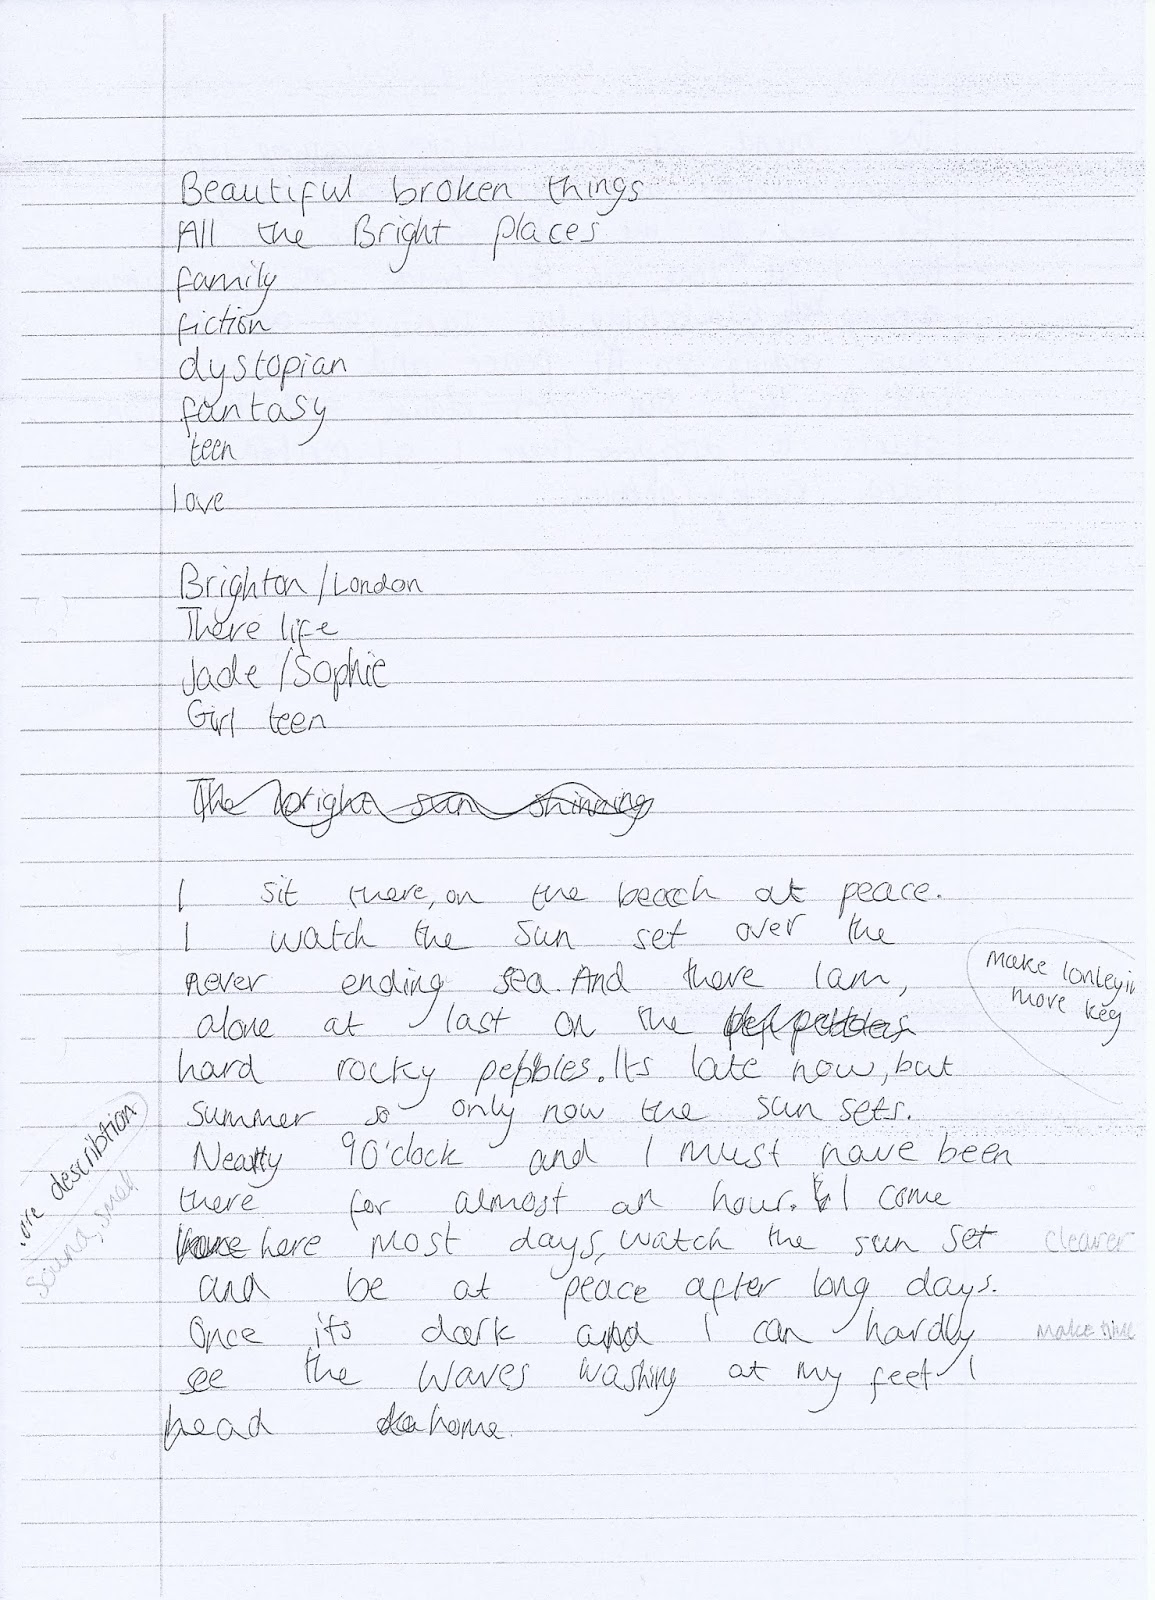 Beautiful broken things
All the Bright places
family
fiction
dystopian
fantasy
teen
love
Brighton/London
There life
Jade/Sophie
Girl teen
The bright sun shinning
I sit there, on the beach at peace.
I watch the sun set over the
never ending sea. And there I am,
alone at last on the
hard rocky pebbles. Its late now, but
summer so only now the sun sets.
Nearly 9O'clock and I must have been
there for almost an hour. I come
here most days, watch the sun set
and be at peace after long days.
Once its dark and I can hardly
see the waves washing at my feet I
head home.
make
more key
describtion
sound, smell
clearer
make time